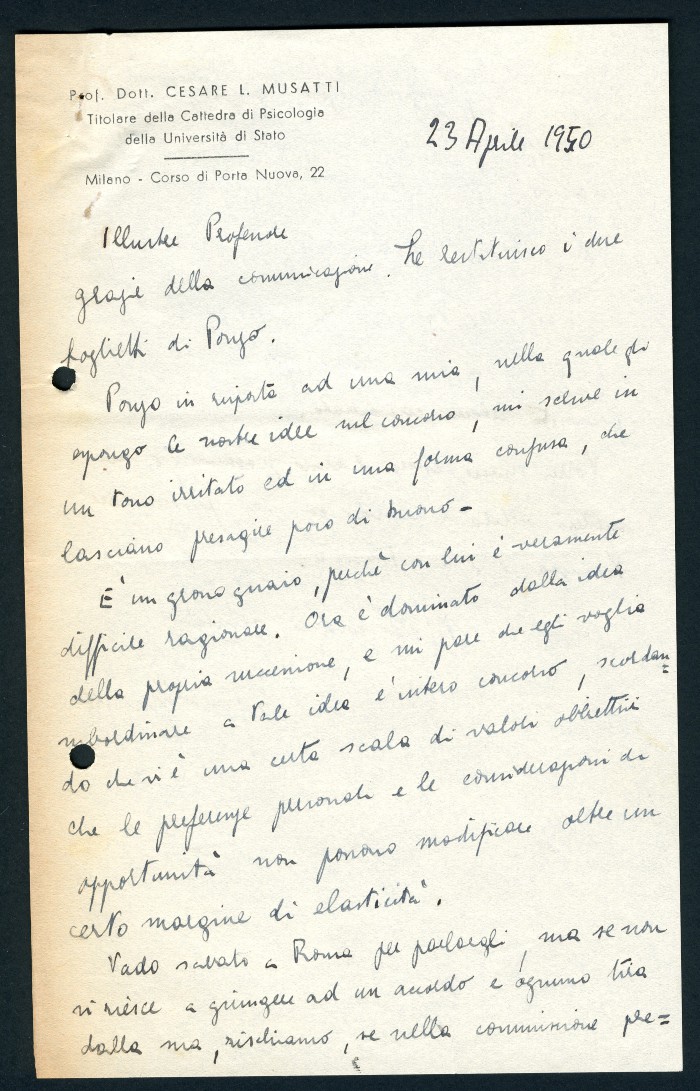 Prof. Dott. CESARE L. MUSATTI
Titolare della Cattedra di Psicologia
della Università di Stato
Milano - Corso di Porta Nuova, 22
23 Aprile 1950
Illustre Professore
grazie della comunicazione. Le restituisco i due
foglietti di Ponzo.
Ponzo in risposta ad una mia, nella quale gli
espongo le nostre idee sul concorso, mi scrive in
un tono irritato ed in una forma confusa, che
lasciano presagire poco di buono -
E' un grosso guaio, perchè con lui è veramente
difficile ragionare. Ora è dominato dalla idea
della propria successione, e mi pare che egli voglia
subordinare a tale idea l'intero concorso, scordan=
do che vi è una certa scala di valori obbiettivi
che le preferenze personali e le considerazioni di
opportunità non possono modificare oltre un
certo margine di elasticità.
Vado sabato a Roma per parlargli, ma se non
si riesce a giungere ad un accordo e ognuno tira
dalla sua, rischiamo, se nella commissione pre=